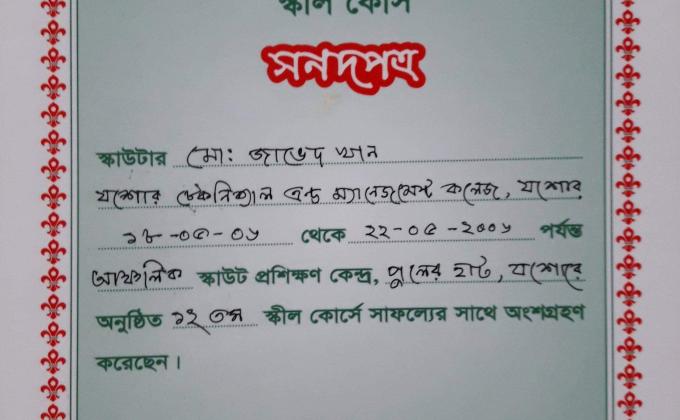 স্কীল কোর্স
সনদপত্র
স্কাউটার মো: জাভেদ খান
যশোর টেকনিক্যাল এন্ড ম্যানেজমেন্ট কলেজ, যশোর
১৮-০৫-০৬ থেকে ২২-০৫-২০০৬ পর্যন্ত
আঞ্চলিক স্কাউট প্রশিক্ষণ কেন্দ্র, পুলের হাট, যশোরে
অনুষ্ঠিত ১২ তম স্কীল কোর্সে সাফল্যের সাথে অংশগ্রহণ
করেছেন।